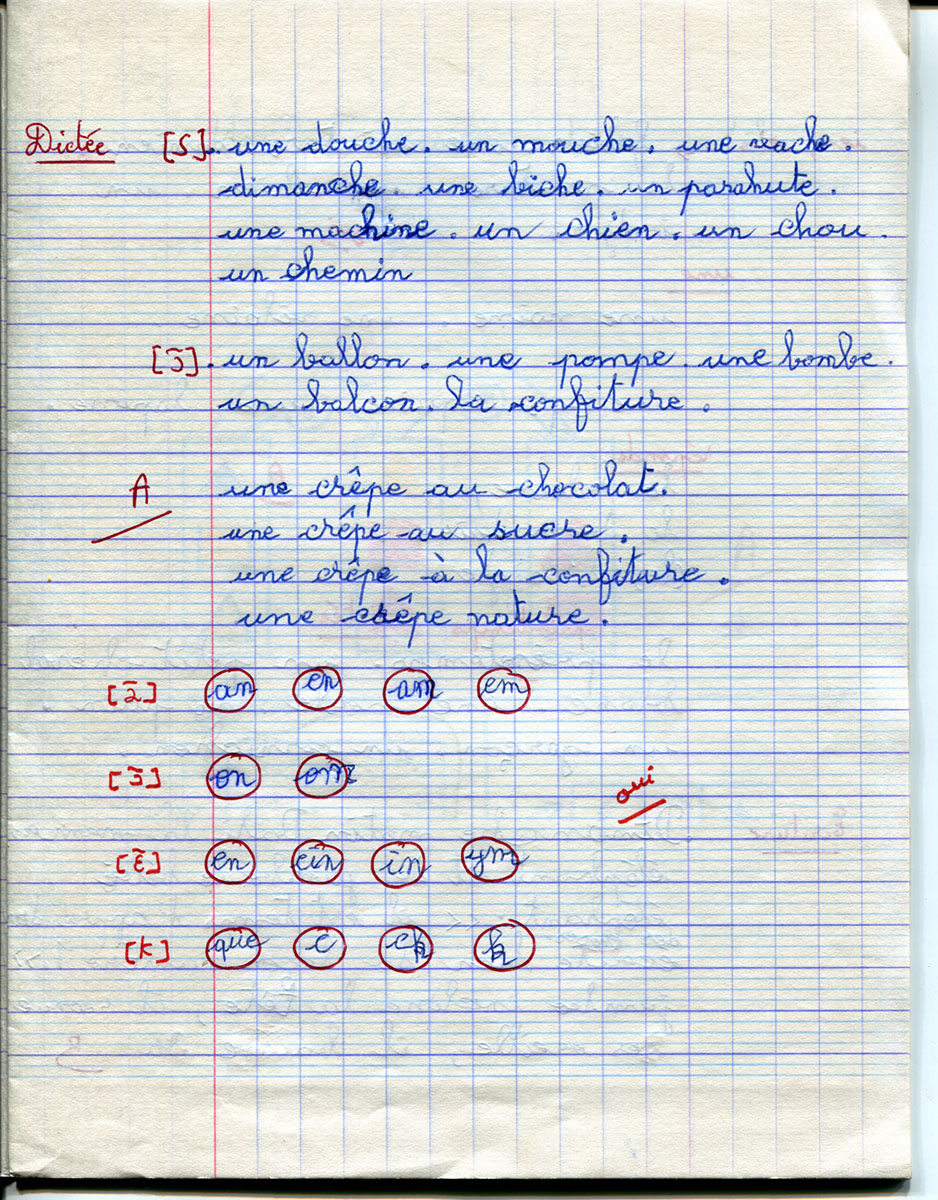 Dictée [ʃ]. une douche. un mouche. une vache.
dimanche. une biche. un parahute.
une machine. un chien. un chou.
un chemin
[ɔ̃]. un ballon. une pompe. une bombe.
un balcon. la confiture.
A une crêpe au chocolat.
une crêpe au sucre.
une crêpe à la confiture.
une crêpe nature.
[ã] an en am em
[ɔ̃] on om
oui
[ɛ̃] en ein in ym
[k] que c ck k